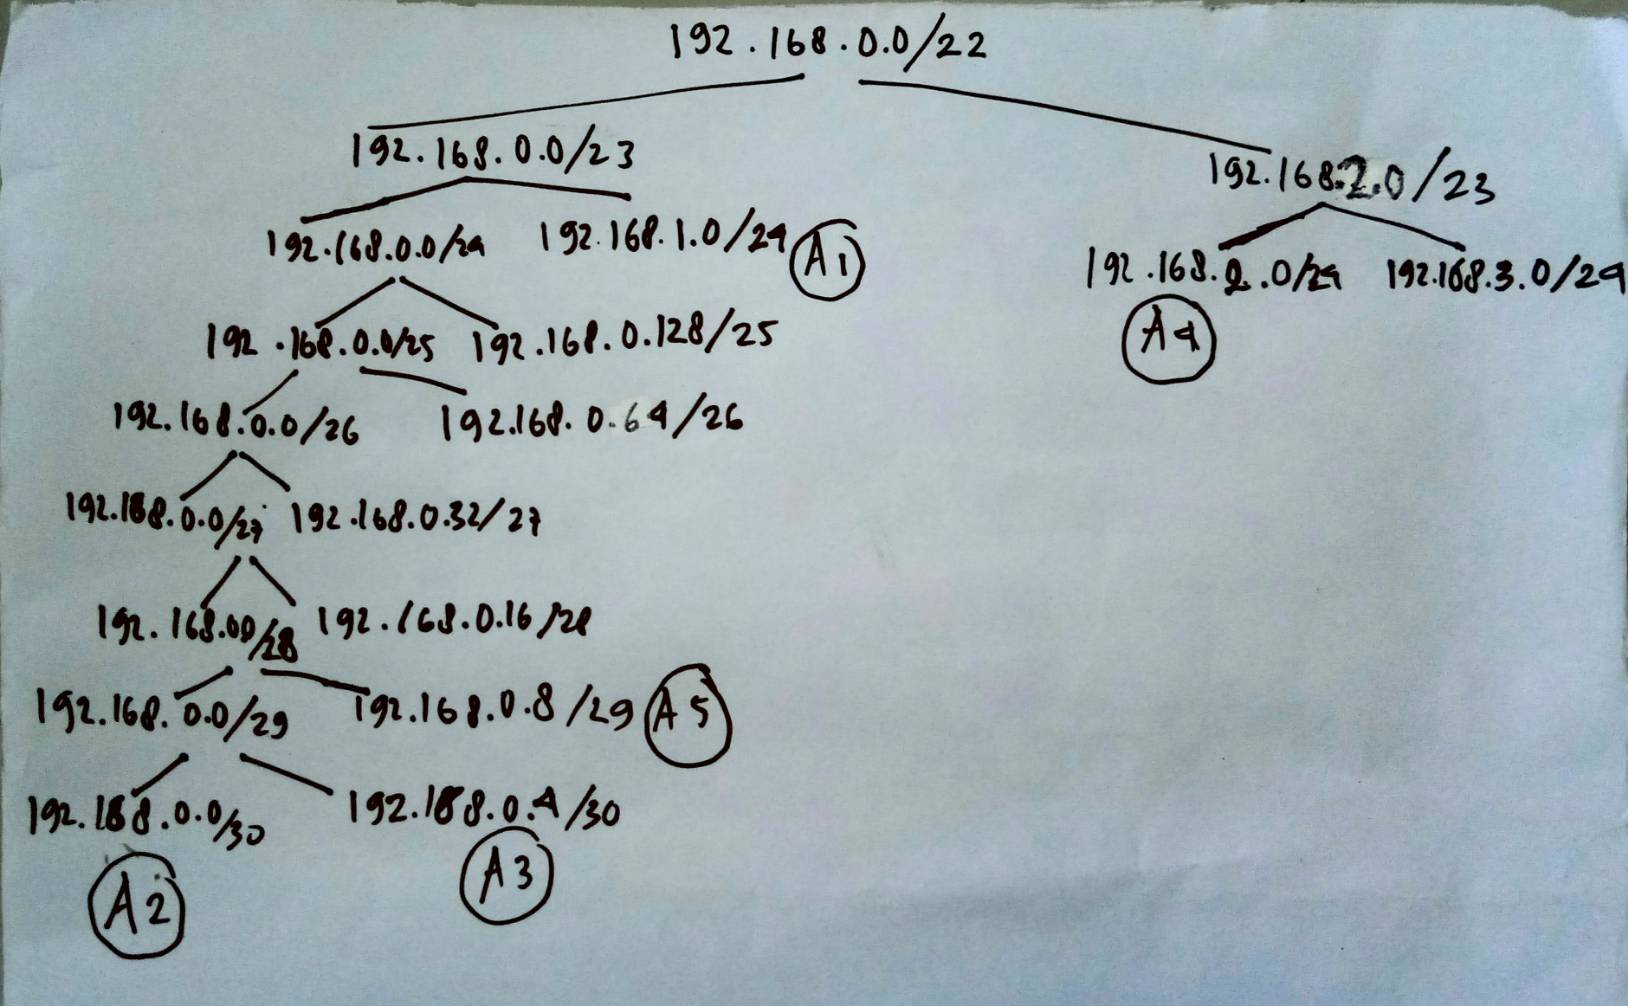 192.168.0.0/22
192.168.0.0/23 192.168.2.0/23
192.168.0.0/24 192.168.1.0/24 A1 192.168.2.0/24 192.168.3.0/24
A4
192.168.0.0/25 192.168.0.128/25
192.168.0.0/26 192.168.0.64/26
192.168.0.0/27 192.168.0.32/27
192.168.00/28 192.168.0.16/28
192.168.0.0/29 192.168.0.8/29 A5
192.168.0.0/30 192.168.0.4/30
A2 A3